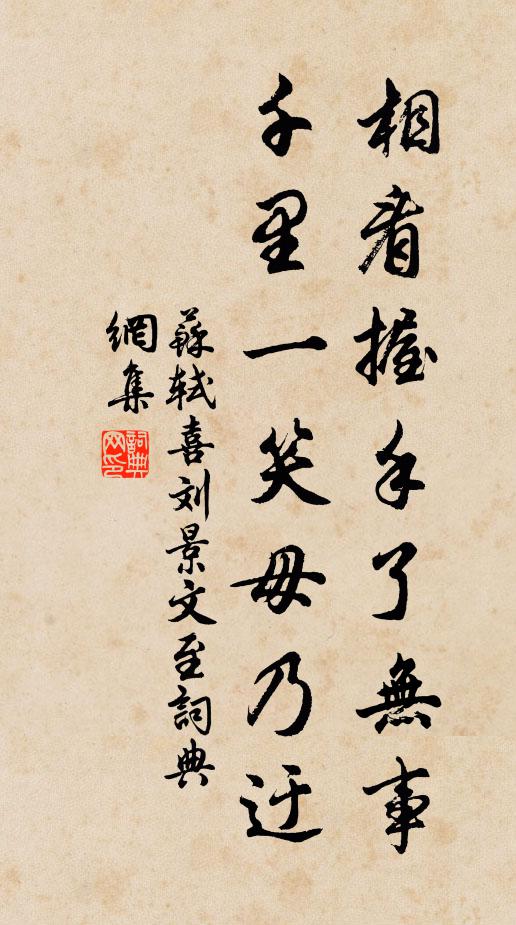 相看握手了無事
千里一笑毋乃迂
蘇軾喜刘景文至詞典
網集
詞典網印